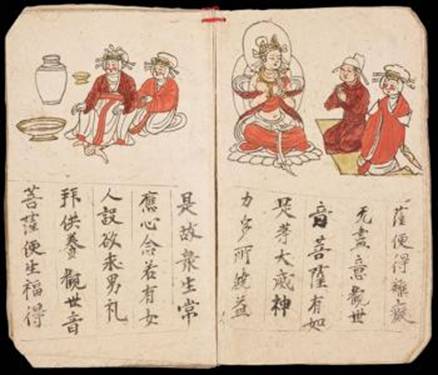 薩便得離癡
无盡意觀世
音菩薩有如
是等大威神
力多所饒益
是故眾生常
應心念若有女
人設欲求男礼
拜供養觀世音
菩薩便生福德